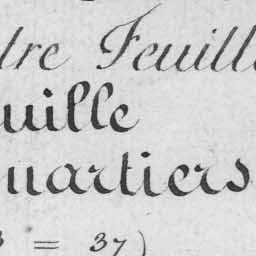 dre Feuill
uille
uartiers
3 = 37)